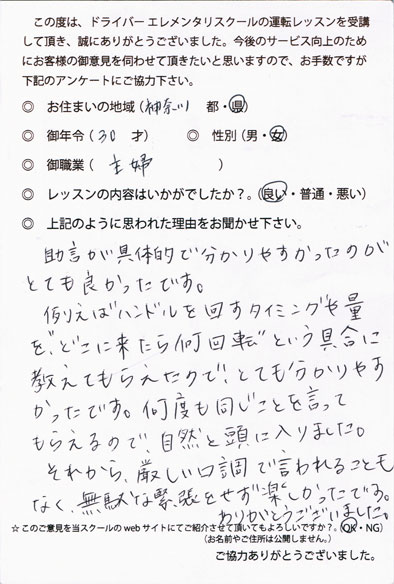 この度は、ドライバー エレメンタリスクールの運転レッスンを受講
して頂き、誠にありがとうございました。今後のサービス向上のため
にお客様の御意見を伺わせて頂きたいと思いますので、お手数ですが
下記のアンケートにご協力下さい。
◎ お住まいの地域（神奈川 都・県）
◎ 御年令（30 才） ◎ 性別（男・女）
◎ 御職業（ 主婦 ）
◎ レッスンの内容はいかがでしたか？。（良い・普通・悪い）
◎ 上記のように思われた理由をお聞かせ下さい。
助言が具体的で分かりやすかったのが
とても良かったです。
例えばハンドルを回すタイミングや量
を、“どこに来たら何回転”という具合に
教えてもらえたので、とても分かりやす
かったです。何度も同じことを言って
もらえるので、自然と頭に入りました。
それから、厳しい口調で言われることも
なく、無駄な緊張をせず楽しかったです。
ありがとうございました。
☆このご意見を当スクールの web サイトにてご紹介させて頂いてもよろしいですか？。（OK・NG）
（お名前やご住所は公開しません。）
ご協力ありがとうございました。